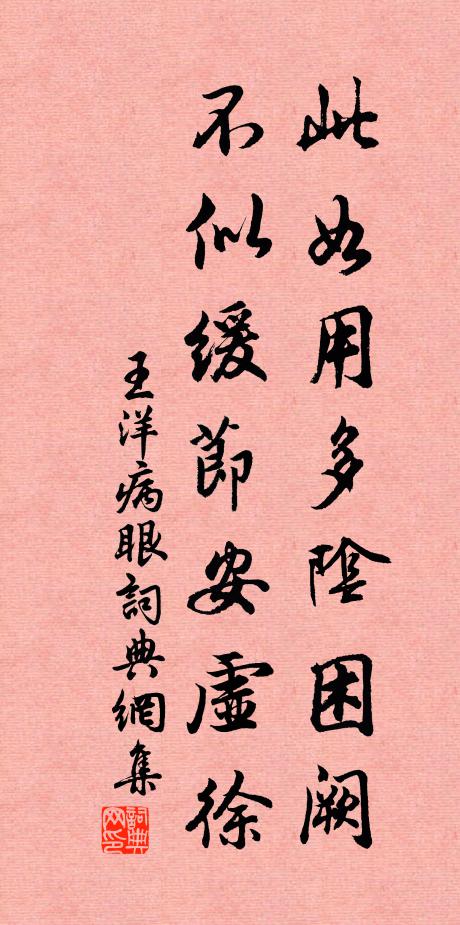 此如用多陰困闕
不似緩節安虛徐
王洋病眼詞典網集
詞典網印